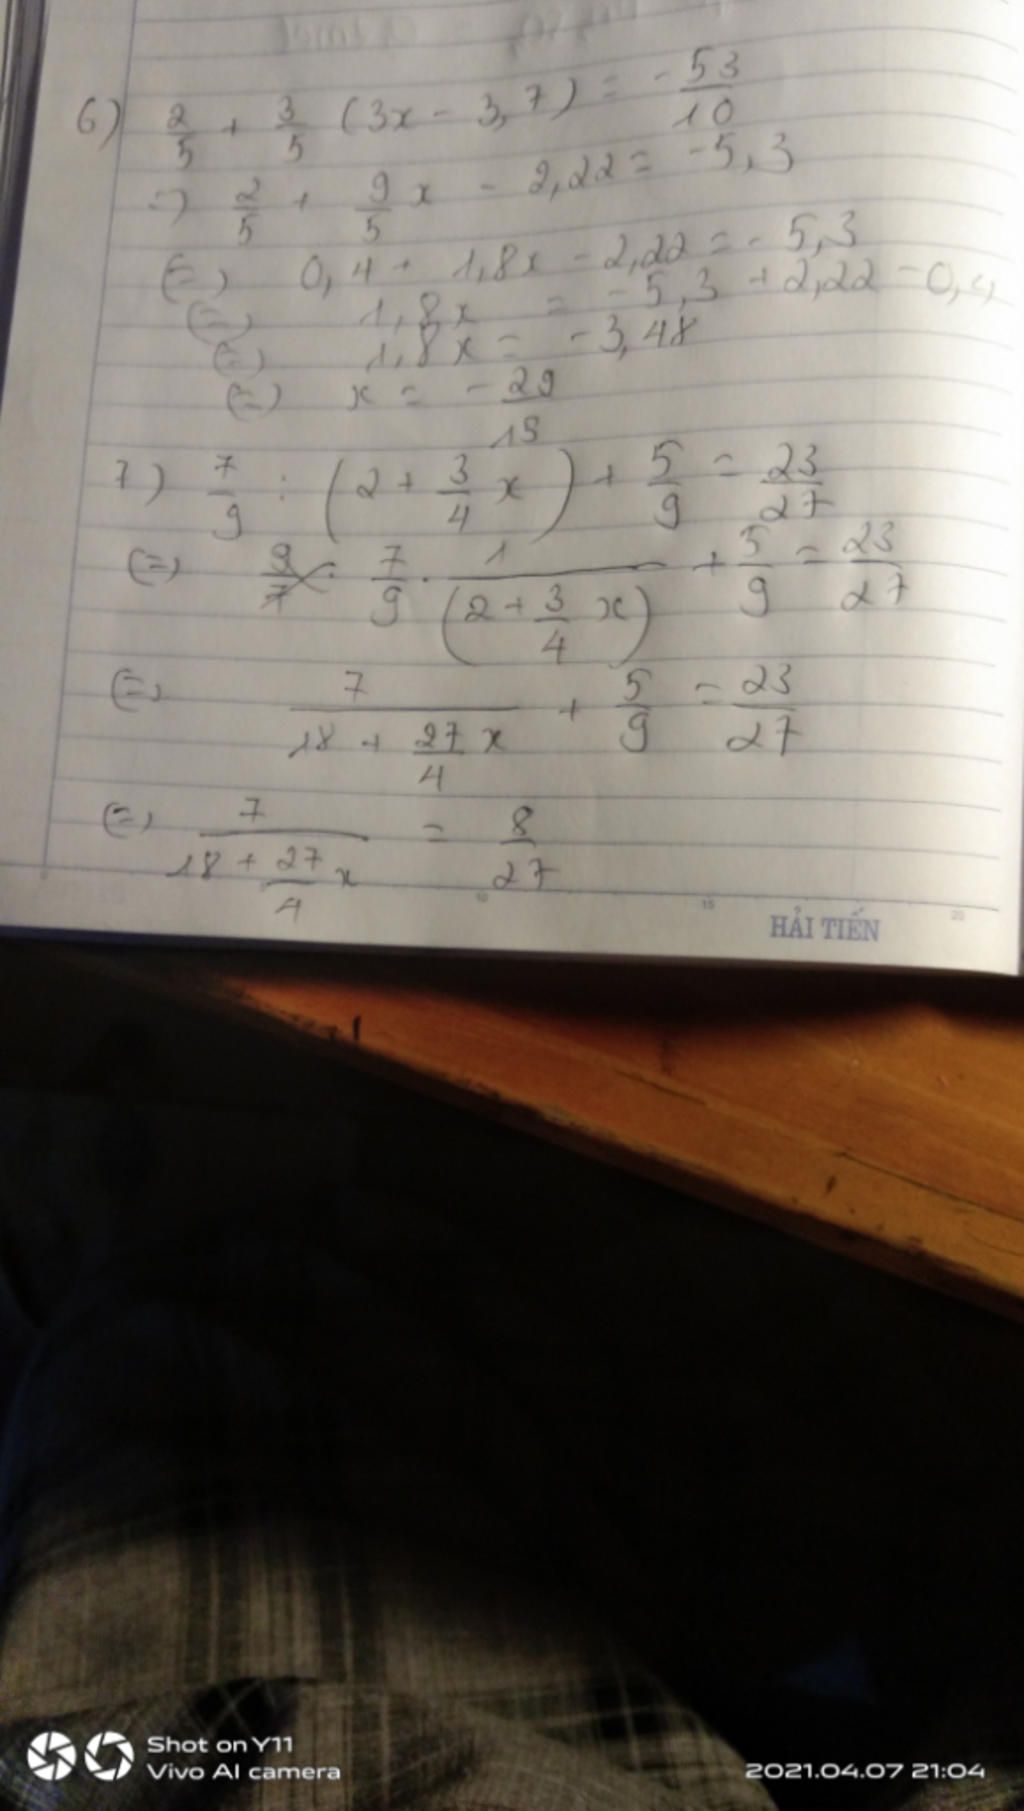 6) 2/5 + 3/5 (3x - 3,7) = -53/10
=) 2/5 + 9/5 x - 2,22 = -5,3
(=) 0,4 + 1,8x - 2,22 = -5,3
(=) 1,8x = -5,3 + 2,22 - 0,4
(=) 1,8x = -3,48
(=) x = -29/15
7) 7/9 : (2 + 3/4 x) + 5/9 = 23/27
(=) 7/9 . 1/(2 + 3/4 x) + 5/9 = 23/27
(=) 7/(18 + 27/4 x) + 5/9 = 23/27
(=) 7/(18 + 27/4 x) = 8/27
10 15 20
HẢI TIẾN
Shot on Y11
Vivo AI camera
2021.04.07 21:04